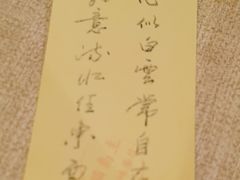 似白雲常自在
意流水任東西